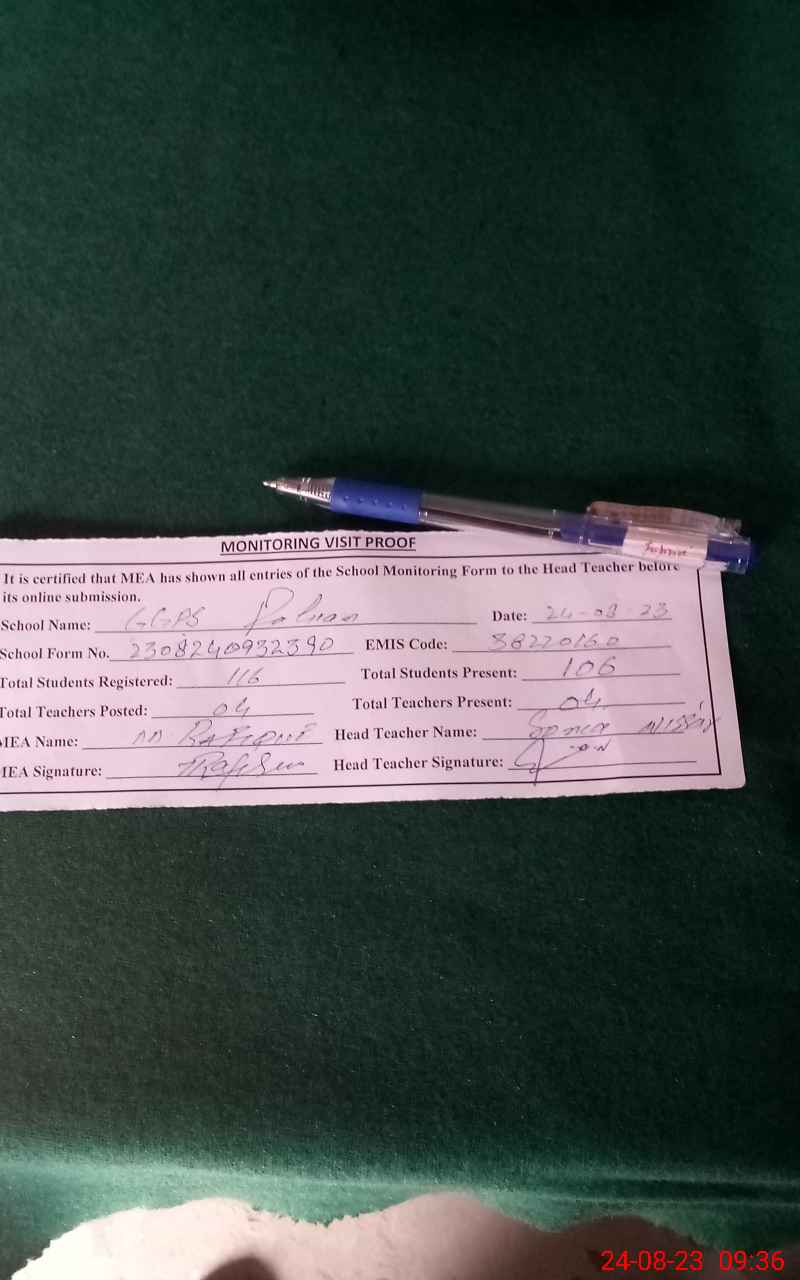 MONITORING VISIT PROOF
It is certified that MEA has shown all entries of the School Monitoring Form to the Head Teacher before
its online submission.
School Name: GGPS Date: 24-08-23
School Form No. 2308240932390 EMIS Code: 38220160
Total Students Registered: 116 Total Students Present: 106
Total Teachers Posted: 04 Total Teachers Present: 04
MEA Name: Head Teacher Name: Sonia
MEA Signature: Head Teacher Signature:
24-08-23 09:36